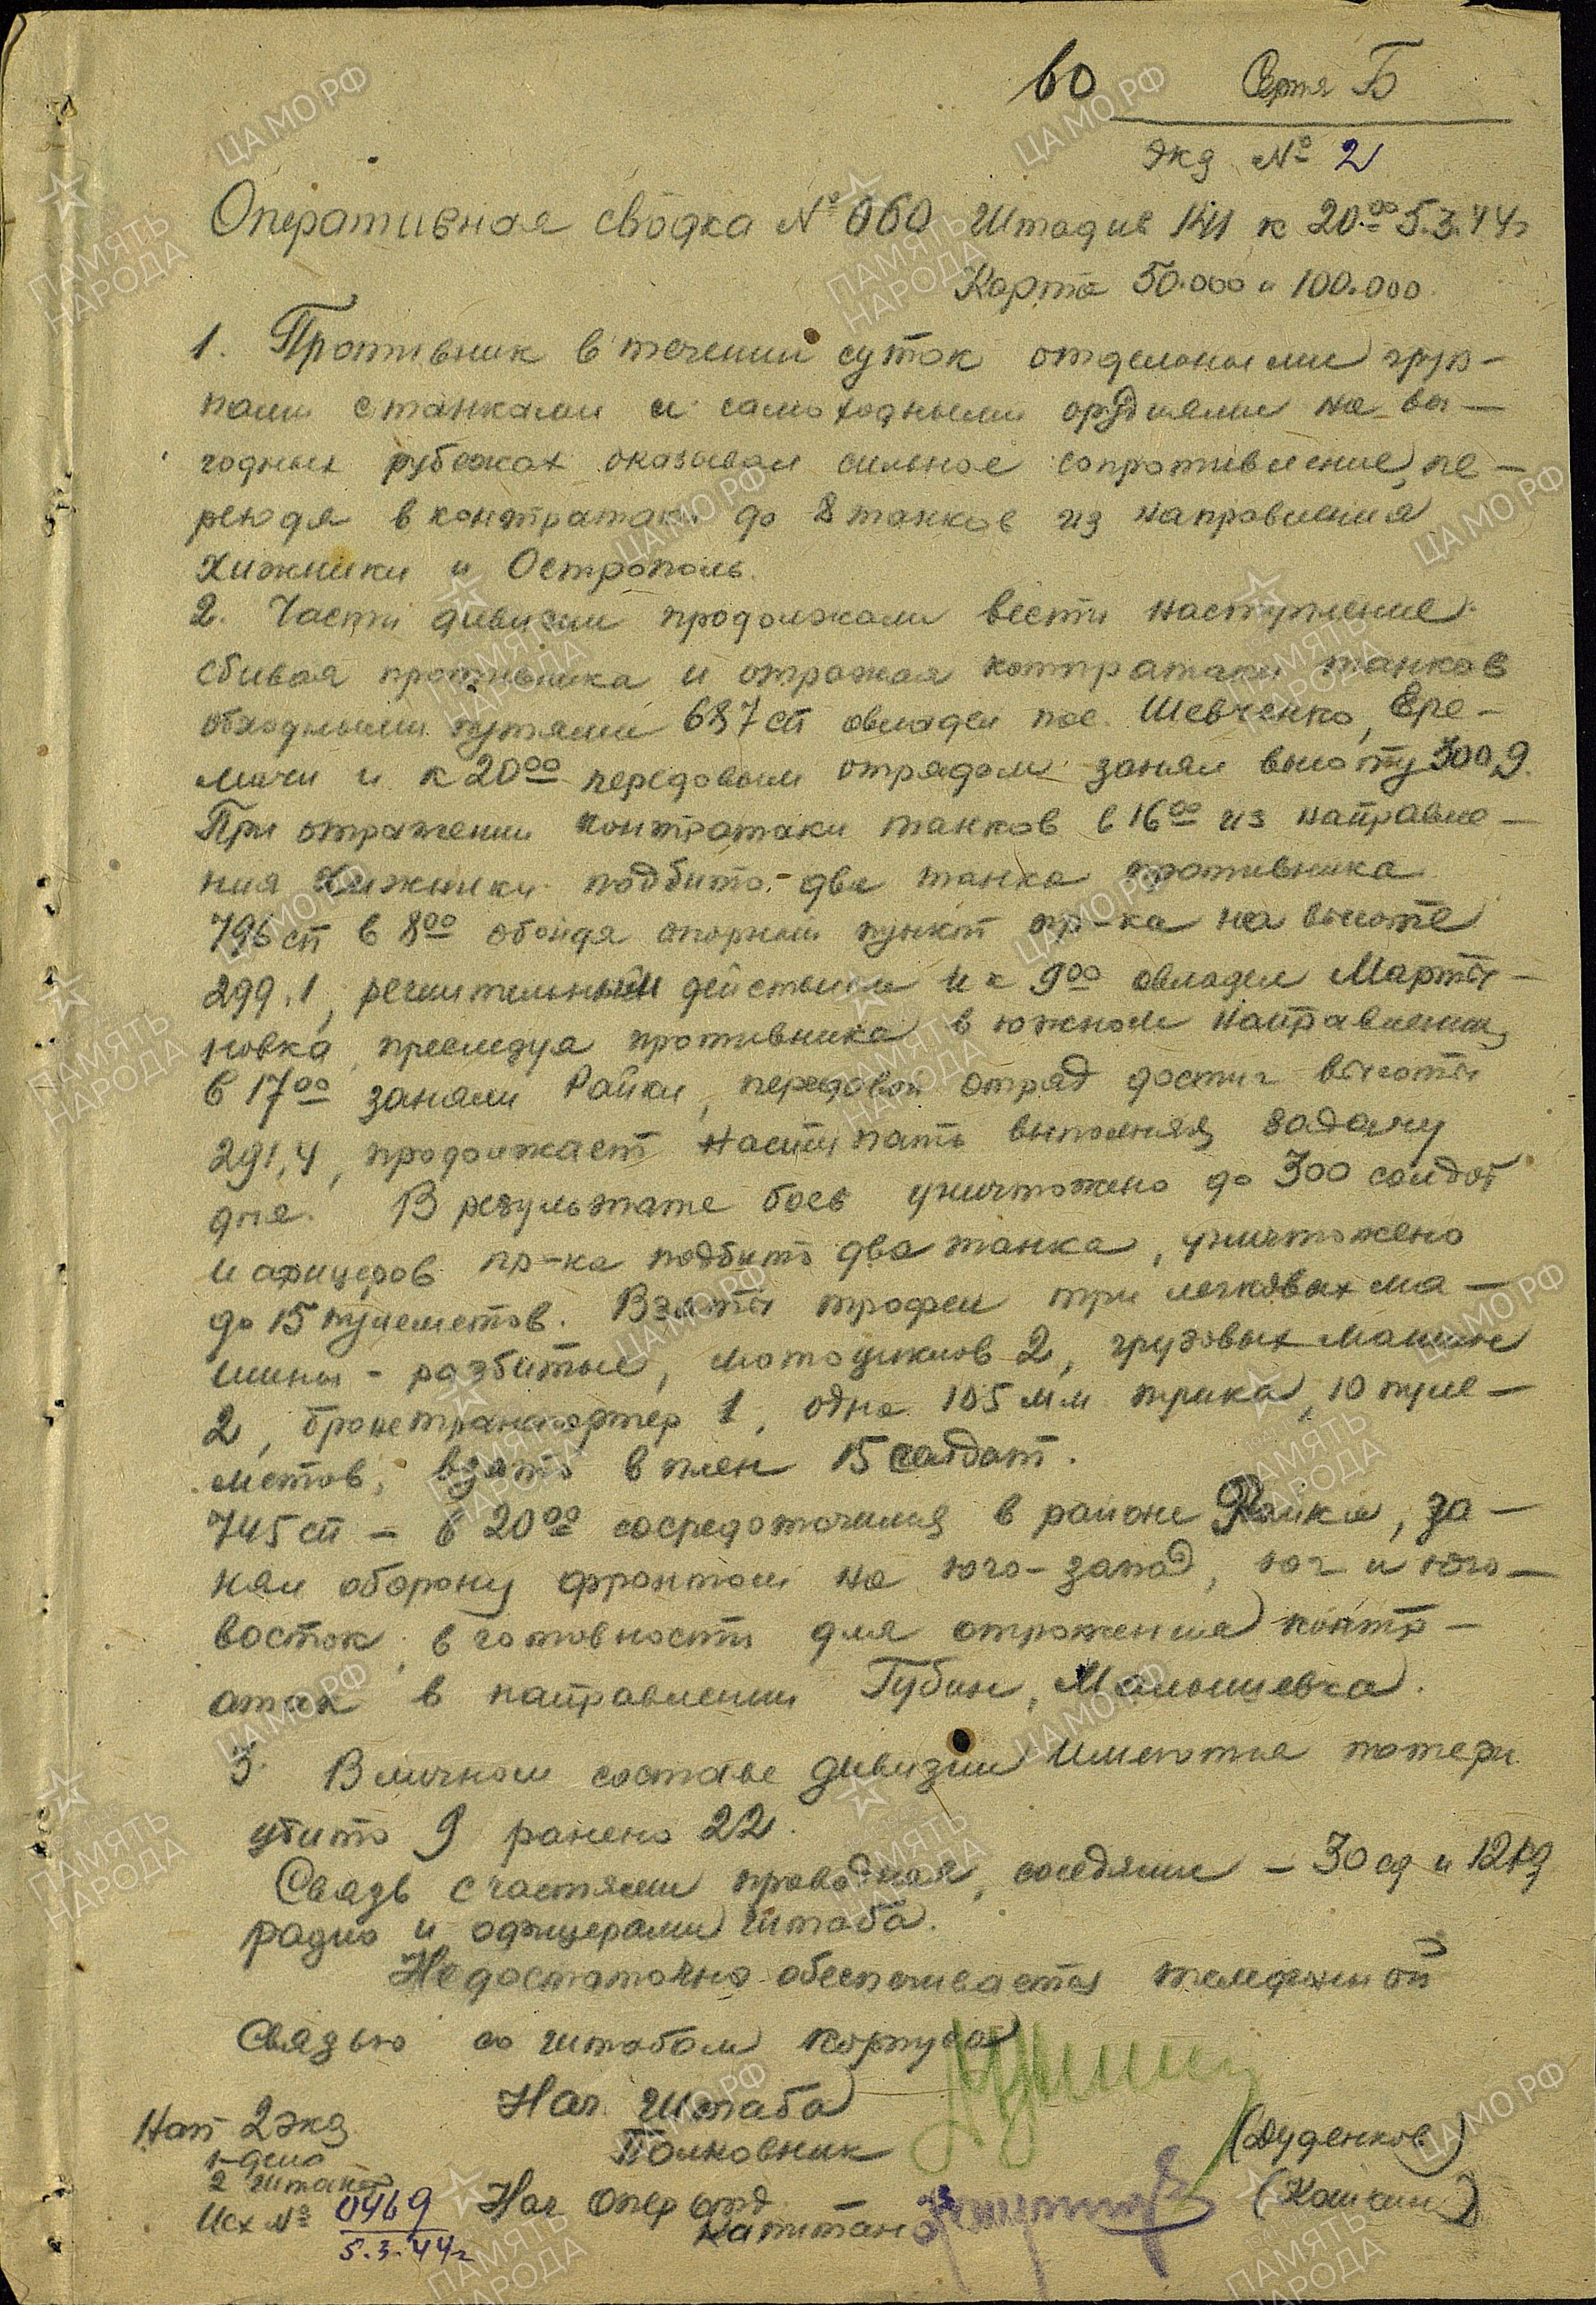 60 Серия Б
экз № 2
Оперативная сводка № 060 Штадив 141 к 20.00 5.3.44г
Карта 50.000 и 100.000.
1. Противник в течении суток отдельными груп-
пами с танками и самоходными орудиями на вы-
годных рубежах оказывал сильное сопротивление, пе-
реходя в контратаки до 8 танков из направления
Хижники и Острополь.
2. Части дивизии продолжали вести наступление
сбивая противника и отражая контратаки танков
обходными путями 687 сп овладел пос. Шевченко, Ере-
мичи и к 20 00 передовым отрядом занял высоту 300,9.
При отражении контратаки танков в 16 00 из направле-
ния Хижники подбито - два танка противника
796 сп в 8 00 обойдя опорный пункт пр-ка на высоте
299.1, решительным действием и к 9 00 овладел Марты-
новка, преследуя противника в южном направлении,
в 17 00 заняли Райки, передовой отряд достиг высоты
291,4, продолжает наступать выполняя задачу
дня. В результате боев уничтожено до 300 солдат
и офицеров пр-ка подбито два танка, уничтожено
до 15 пулеметов. Взяты трофеи три легковых ма-
шины - разбитые, мотоциклов 2, грузовых машин
2, бронетранспортер 1, одна 105 мм пушка, 10 пуле-
метов, взято в плен 15 солдат.
745 сп - в 20 00 сосредоточился в районе Райки, за-
нял оборону фронтом на юго-запад, юг и юго-
восток, в готовности для отражения контр-
атак в направлении Губин, Малышевка.
3. В личном составе дивизии имеются потери
убито 9 ранено 22.
Связь с частями проводная, соседями - 30 сд и
радио и офицерами штаба.
Недостаточно обеспечивается телефонной
связью со штабом корпуса
Нач. Штаба
Полковник (Дуденков)
Нап 2 экз
1-дело
2 штакор
Исх № 0469
5.3.44г
Нач Опер отд
капитан (Кашкин)
ЦАМО РФ
ПАМЯТЬ НАРОДА